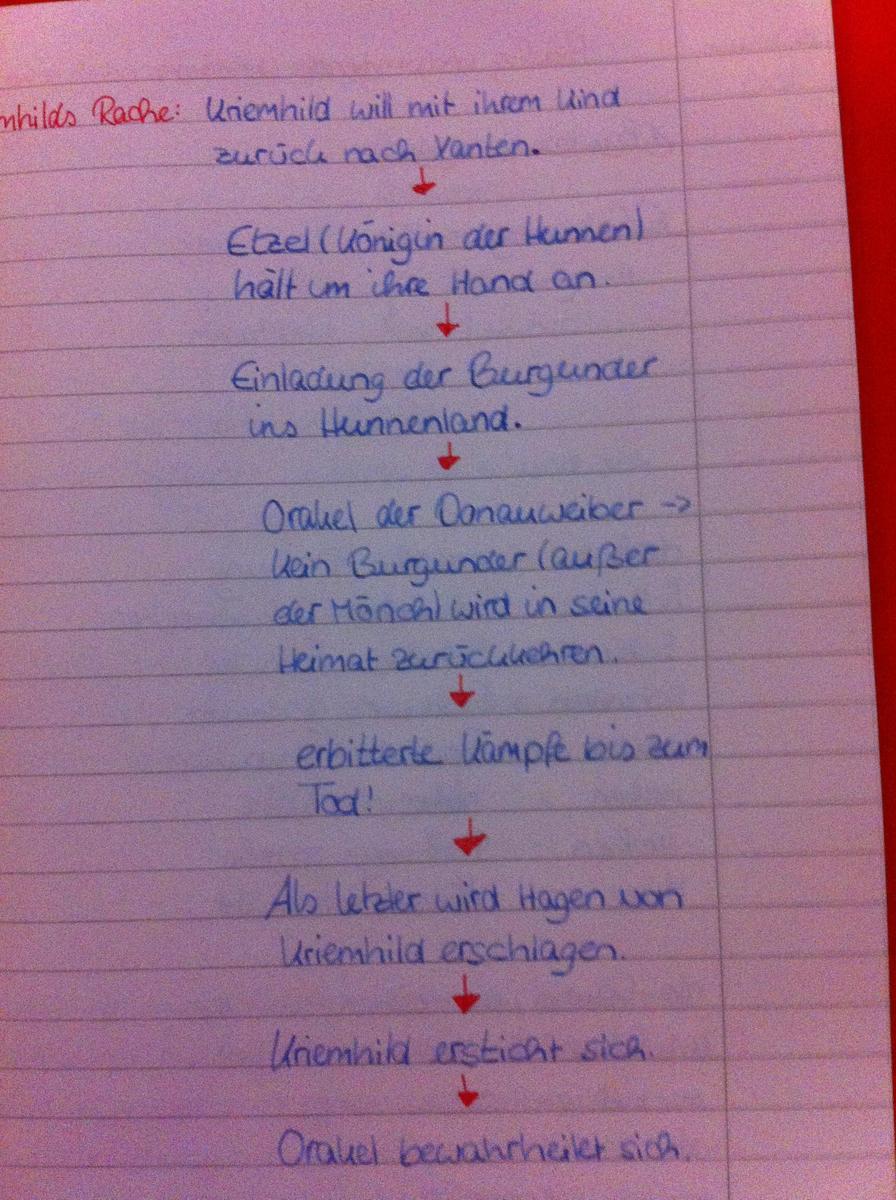 mhilds Rache: Kriemhild will mit ihrem Kind
zurück nach Xanten.
↓
Etzel (Königin der Hunnen)
hält um ihre Hand an.
↓
Einladung der Burgunder
ins Hunnenland.
↓
Orakel der Donauweiber ->
kein Burgunder (außer
der Mönch) wird in seine
Heimat zurückkehren.
↓
erbitterte Kämpfe bis zum
Tod!
↓
Als letzter wird Hagen von
Kriemhild erschlagen.
↓
Kriemhild ersticht sich.
↓
Orakel bewahrheitet sich.